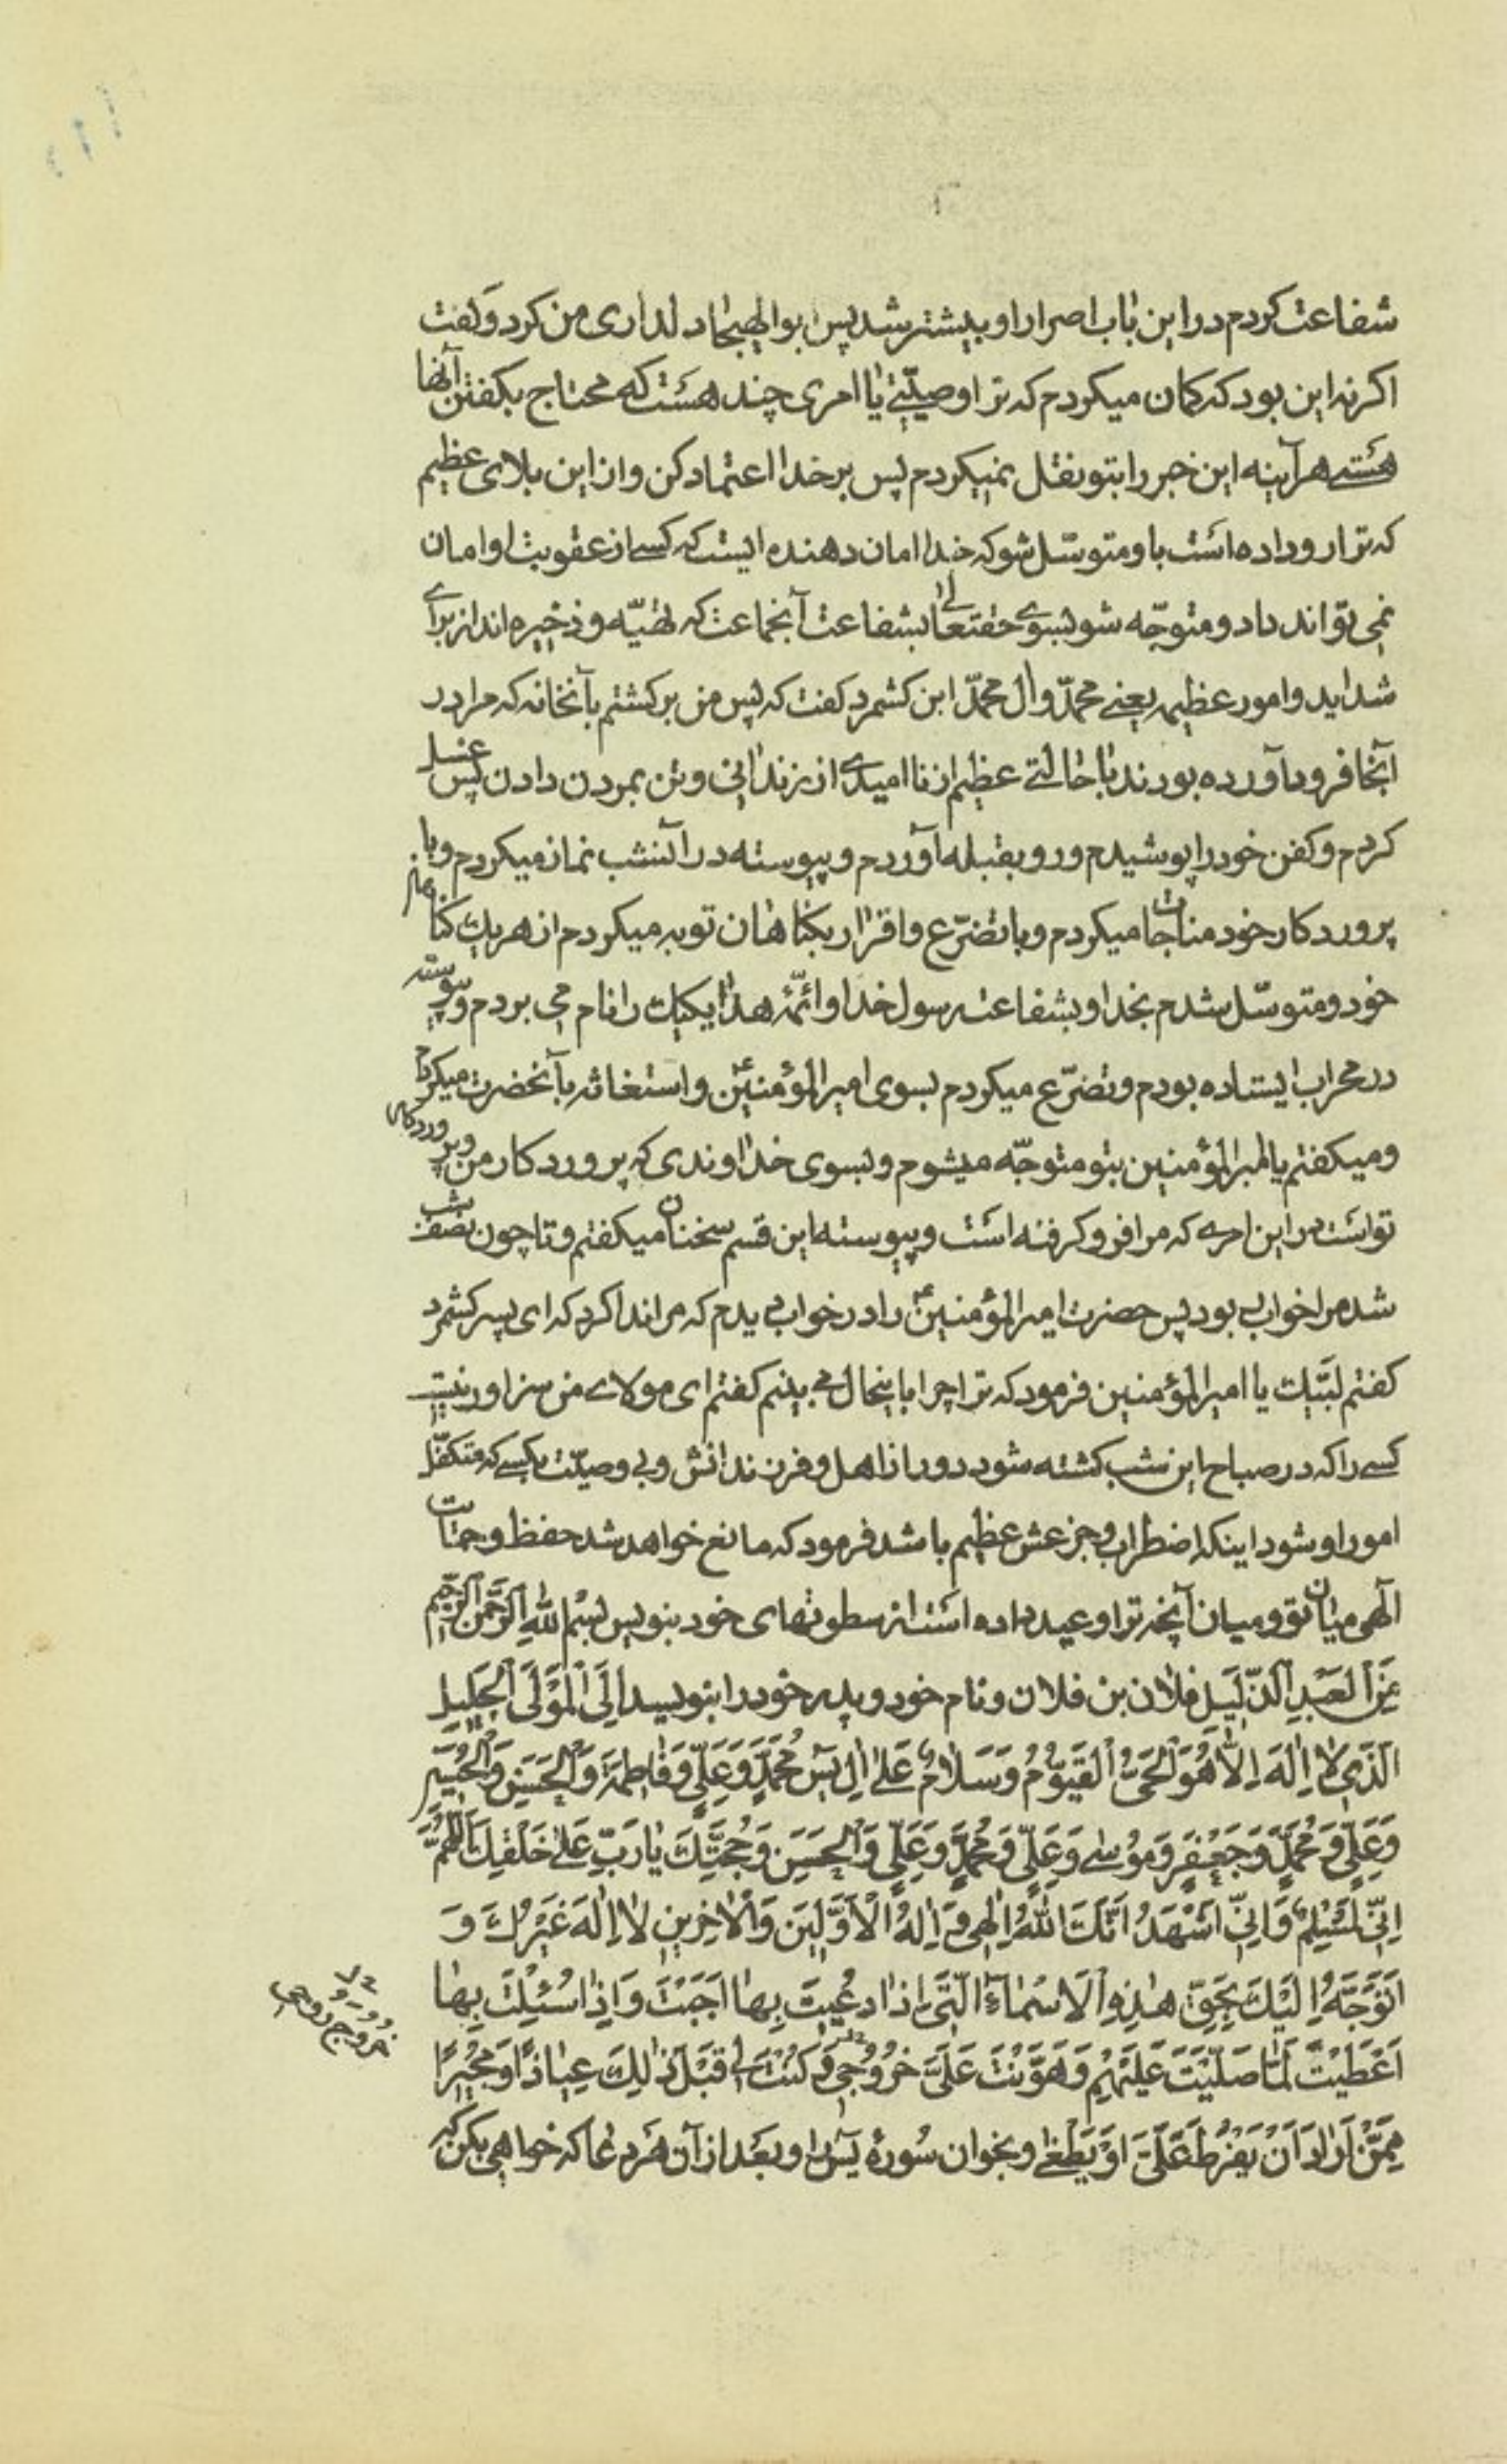 شفاعت کردم در این باب اصرار او بیشتر شد پس بوالهیجا دلداری من کرد و کفت
اکر نه این بود که کمان میکردم که ترا وصیّتی یا امری چند هست که محتاج بکفتن آنها
هستی هر آینه این خبر را بتو نقل نمیکردم پس بر خدا اعتماد کن و از این بلای عظیم
که ترا رو داده است باو متوسّل شو که خدا امان دهنده ایست که کسی از عقوبت او امان
نمی تواند داد و متوجّه شو بسوی حقتعالی بشفاعت آنجماعت که تهیّه و ذخیره اند از برای
شداید و امور عظیمه یعنی محمّد و ال محمّد ابن کشمرد کفت که پس من برکشتم بآنخانه که مرا در
آنجا فرود آورده بودند با حالتی عظیم از ناامیدی از زندکانی و تن بمردن دادن پس غسل
کردم و کفن خود را پوشیدم و رو بقبله آوردم و پیوسته در آنشب نماز میکردم و با
پروردکار خود مناجات میکردم و با تضرّع و اقرار بکناهان توبه میکردم از هر یك کناهان
خود و متوسّل شدم بخدا و بشفاعت رسول خدا و ائمّهٔ هدا یکیك را نام می بردم و پیوسته
در محراب ایستاده بودم و تضرّع میکردم بسوی امیر المؤمنین ع و استغاثه بآنحضرت میکردم
و میکفتم یا امیر المؤمنین بتو متوجّه میشوم و بسوی خداوندی که پروردکار من و پروردکار
تو است در این امری که مرا فرو کرفته است و پیوسته این قسم سخنان میکفتم و تا چون نصف شب
شد مرا خواب بود پس حضرت امیر المؤمنین ع را در خواب دیدم که مرا ندا کرد که ای پسر کشمرد
کفتم لبّیك یا امیر المؤمنین فرمود که ترا چرا باینحال می بینم کفتم ای مولای من سزاور نیست
کسی را که در صباح این شب کشته شود دور از اهل و فرزندانش و بی وصیّت بکسی که متکفّل
امور او شود اینکه اضطراب و جزعش عظیم باشد فرمود که مانع خواهد شد حفظ و حمایت
آلهی میان تو و میان آنچه ترا وعید داده است از سطوتهای خود بنویس بِسْمِ اللّٰهِ الرَّحْمٰنِ الرَّحِیمِ
مِنَ الْعَبْدِ الذَّلِیلِ فلان بن فلان و نام خود و پدر خود را بنویسد اِلَی الْمَوْلَی الْجَلِیلِ
الَّذِی لا اِلٰهَ اِلَّا هُوَ الْحَیُّ الْقَیُّومُ وَ سَلَامٌ عَلٰی اٰلِ یٰسٓ مُحَمَّدٍ وَ عَلِیٍّ وَ فَاطِمَةَ وَ الْحَسَنِ وَ الْحُسَیْنِ
وَ عَلِیٍّ وَ مُحَمَّدٍ وَ جَعْفَرٍ وَ مُوسٰی وَ عَلِیٍّ وَ مُحَمَّدٍ وَ عَلِیٍّ وَ الْحَسَنِ وَ حُجَّتِكَ یَا رَبِّ عَلٰی خَلْقِكَ اَللّٰهُمَّ
اِنِّی لَمُسْلِمٌ وَ اِنِّی اَشْهَدُ اَنَّكَ اللّٰهُ اِلٰهِی وَ اِلٰهُ الْاَوَّلِینَ وَ الْاٰخِرِینَ لا اِلٰهَ غَیْرُكَ وَ
اَتَوَجَّهُ اِلَیْكَ بِحَقِّ هٰذِهِ الْاَسْمَاءِ الَّتِی اِذَا دُعِیتَ بِهَا اَجَبْتَ وَ اِذَا سُئِلْتَ بِهَا
اَعْطَیْتَ لَمَّا صَلَّیْتَ عَلَیْهِمْ وَ هَوَّنْتَ عَلَیَّ خُرُوجِی وَ كُنْتَ لِی قَبْلَ ذٰلِكَ عِیَاذًا وَ مُجِیرًا
خروج روحی
مِمَّنْ اَرَادَ اَنْ یَفْرُطَ عَلَیَّ اَوْ یَطْغٰی و بخوان سُورهٔ یٰسٓ را و بعد از آن هر دعا که خواهی بکن که